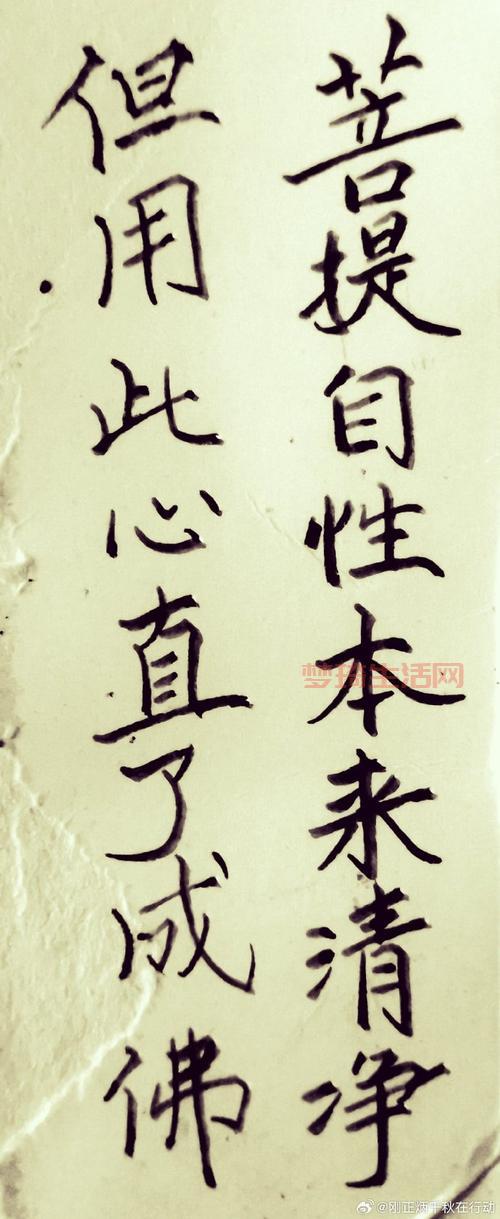 菩提自性本来清净
但用此心直了成佛
梦琦生活网
@刚正炳千秋在行动